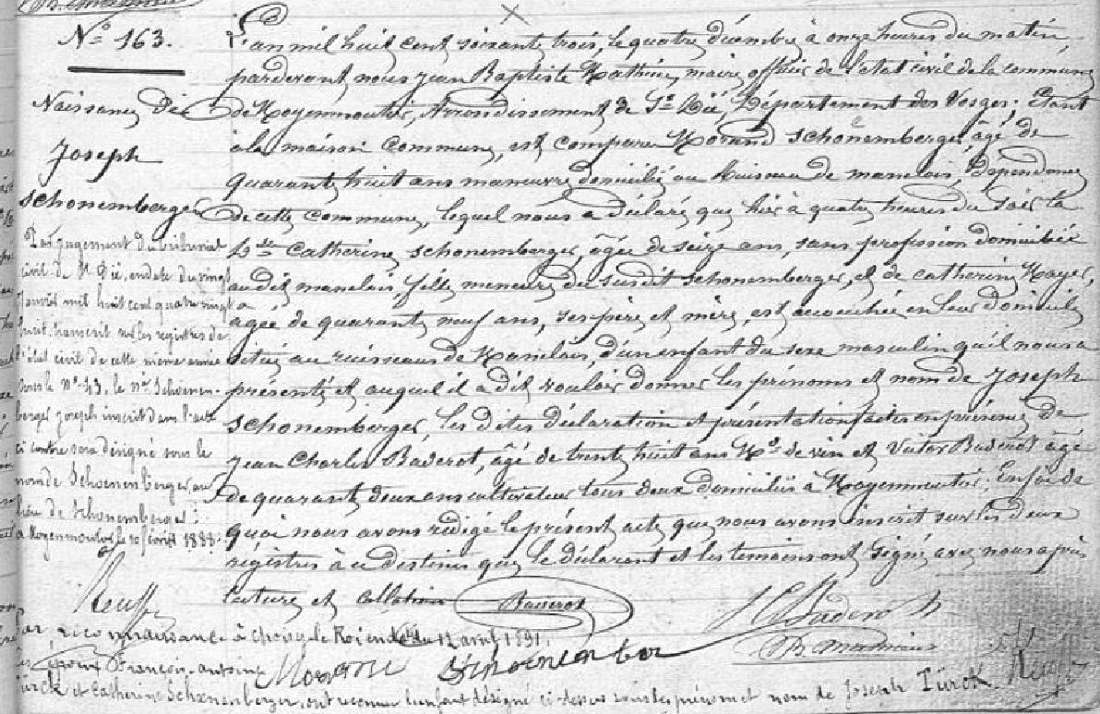 N° 163.
Naissance de
Joseph
Schonemberger
Par jugement du tribunal
civil de St Dié, en date du vingt
Janvier mil huit cent quatre vingt
huit, transcrit sur les registres de
l'état civil de cette même année
sous le N° 43, le né Schoenen-
berger Joseph inscrit dans l'acte
ci contre sera désigné sous le
nom de Schoenenberger au
lieu de Schonemberger.
a Moyenmoutier, le 10 février 1888.
L'an mil huit cent soixante trois, le quatre décembre à onze heures du matin,
pardevant nous Jean Baptiste Mathieu, maire officier de l'état civil de la commune
de Moyenmoutier, Arrondissement de St Dié, Département des Vosges. Etant
à la maison commune, est comparu Morand Schonemberger, âgé de
quarante huit ans manœuvre domicilié au Ruisseau de manelois, Dépendance
de cette commune, lequel nous a déclaré que hier à quatre heures du soir la
Catherine Schonemberger, âgée de seize ans, sans profession domiciliée
audit manelois, fille mineure du susdit Schonemberger, et de Catherine Mayer,
agée de quarante neuf ans, ses père et mère, est accouchée en leur domicile
situé au ruisseau de Manelois, d'un enfant du sexe masculin qu'il nous a
présenté et auquel il a dit vouloir donner les prénoms et nom de Joseph
Schonemberger, les dites déclaration et présentation faites en présence de
Jean Charles Baderot, âgé de trente huit ans Md de vin et Victor Baderot âgé
de quarante deux ans cultivateur tous deux domiciliés à Moyenmoutier. En foi de
quoi nous avons rédigé le présent acte que nous avons inscrit sur les deux
régistres à ce destinés que le déclarant et les témoins ont signé avec nous après
lecture et collation
Baderot
Baderot
Morand Schoenenber
Par reconnaissance à Choisy-le-Roi en date du 12 avril 1891,
les époux François-Antoine
Türck et Catherine Schoenenberger, ont reconnu l'enfant désigné ci-dessus sous les prénom et nom de Joseph Türck.